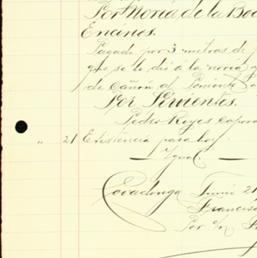 Por Noria de la Boc
Encinos.
Pagado por 3 metros de p
que se le dió á la noria q
de Cañon al Poniente
Por Simientes.
Pedro Reyes Capora
" 21 Existencia para hoy
Igual
Covadonga Junio 21
Francisc
Por